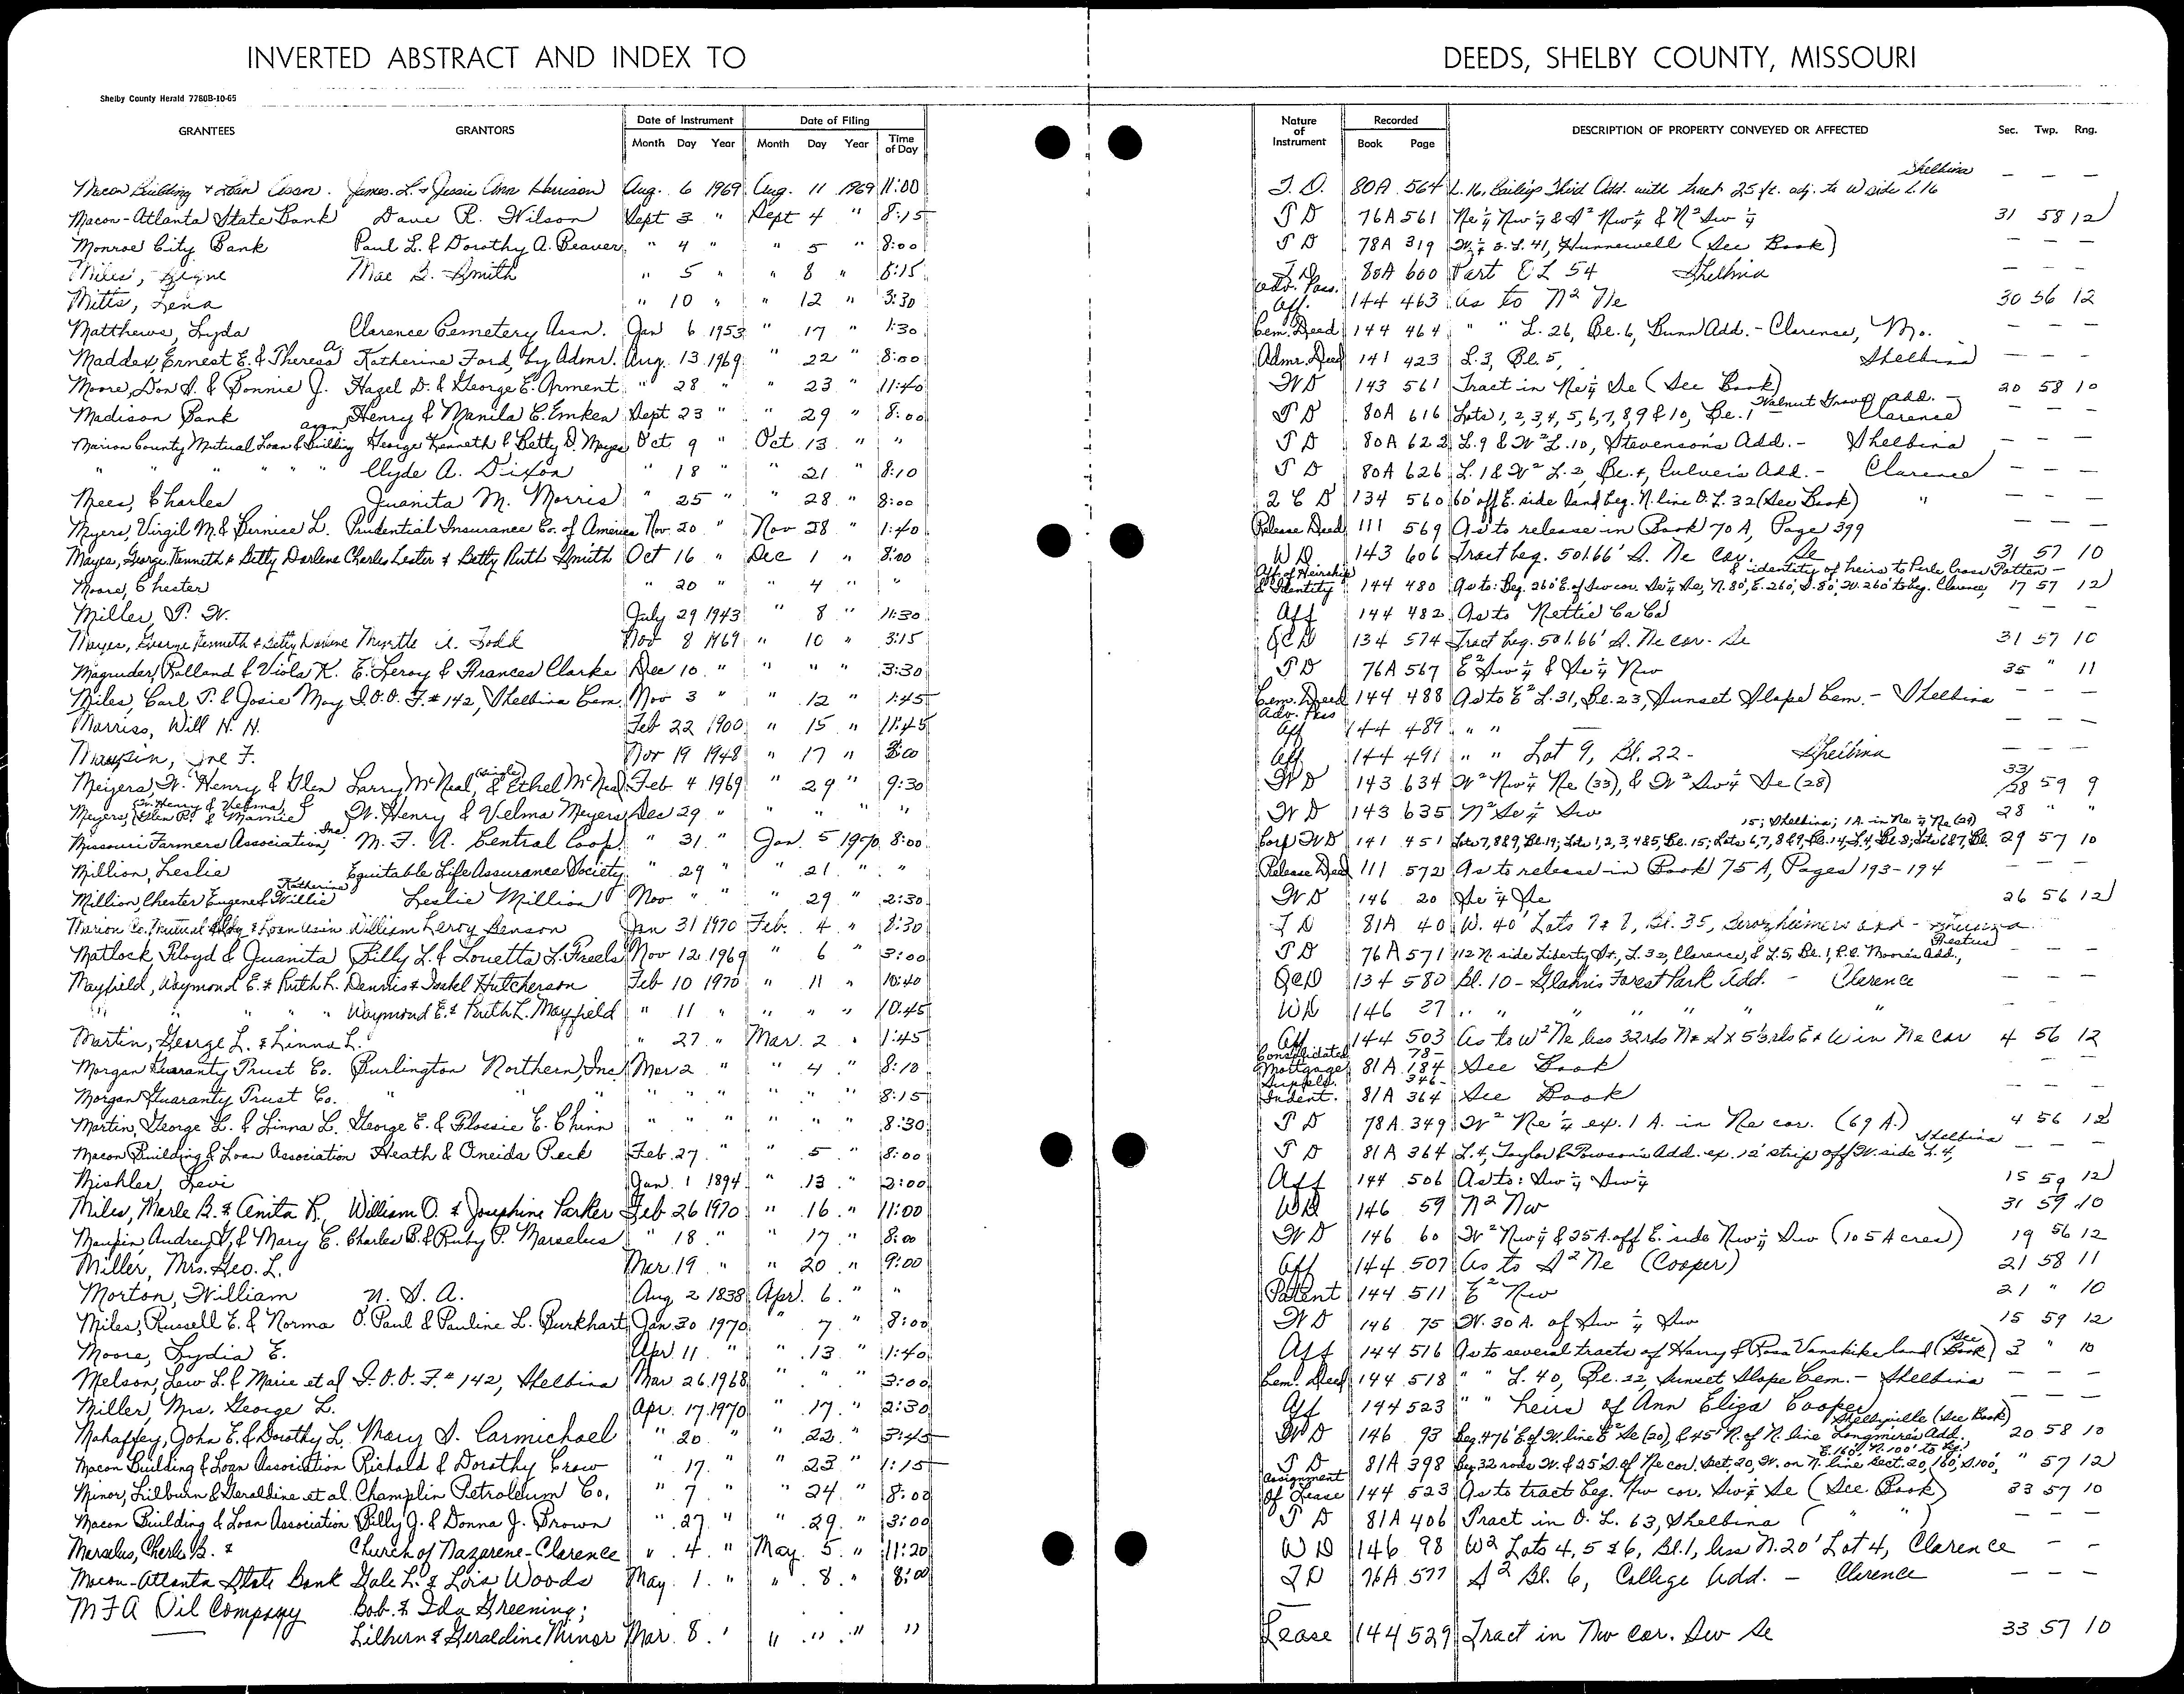 INVERTED ABSTRACT AND INDEX TO DEEDS, SHELBY COUNTY, MISSOURI
Shelby County Herald 7760B-10-65
GRANTEES GRANTORS Date of Instrument Month Day Year Date of Filing Month Day Year Time of Day Nature of Instrument Recorded Book Page DESCRIPTION OF PROPERTY CONVEYED OR AFFECTED Sec. Twp. Rng.
Macon Building & Loan Assn. James L. & Jessie Ann Harrison Aug. 6 1969 Aug. 11 1969 11:00 T.D. 80A 564 L.16, Bailey's Third Add. with tract 25 ft. adj. to W side L.16 Shelbina — — —
Macon-Atlanta State Bank Dave R. Wilson Sept 3 " Sept 4 " 8:15 T D 76A 561 Ne¼ Nw¼ & S² Nw¼ & N² Sw¼ 31 58 12
Monroe City Bank Paul L. & Dorothy A. Beaver " 4 " " 5 " 8:00 T D 78A 319 W.½ O.L. 41, Hunnewell (See Book) — — —
Miles, Mae S. Smith " 5 " " 8 " 8:15 T.D. 80A 600 Part OL 54 Shelbina — — —
Mitts, Lena " 10 " " 12 " 3:30 Adv. Poss. Aff. 144 463 As to N² Ne 30 56 12
Matthews, Lyda Clarence Cemetery Assn. Jan 6 1953 " 17 " 1:30 Cem. Deed 144 464 " " L. 26, Bl. 6, Bunn Add. - Clarence, Mo. — — —
Maddex, Ernest E. & Theresa A. Katherine Ford, by Admr. Aug. 13 1969 " 22 " 8:00 Admr. Deed 141 423 L.3, Bl. 5, Shelbina — — —
Moore, Don S. & Bonnie J. Hazel D. & George E. Arment " 28 " " 23 " 11:40 WD 143 561 Tract in Ne¼ Se (See Book) 20 58 10
Madison Bank Henry & Manila C. Emkea Sept 23 " " 29 " 8:00 T D 80A 616 Lots 1, 2, 3, 4, 5, 6, 7, 8, 9 & 10, Bl. 1 Walnut Grove Add. - Clarence — — —
Marion County Mutual Loan & Building Assn George Kenneth & Betty D. Mayes Oct 9 " Oct 13 " " T D 80A 622 L.9 & W² L.10, Stevenson's Add. - Shelbina — — —
" " " " " " Clyde A. Dixon " 18 " " 21 " 8:10 T D 80A 626 L. 1 & W² L. 2, Bl. 4, Culver's Add. - Clarence — — —
Mees, Charles Juanita M. Morris " 25 " " 28 " 8:00 Q C D 134 560 60' off E. side land beg. N. line O.L. 32 (See Book) " — — —
Myers, Virgil M. & Bernice L. Prudential Insurance Co. of America Nov 20 " Nov 28 " 1:40 Release Deed 111 569 As to release in Book 70 A, Page 399 — — —
Mayes, George Kenneth & Betty Darlene Charles Lester & Betty Ruth Smith Oct 16 " Dec 1 " 8:00 WD 143 606 Tract beg. 501.66' S. Ne cor. Se 31 57 10
Moore, Chester " 20 " " 4 " " Aff of Heirship & Identity 144 480 As to: Beg. 260' E. of Sw cor. Se¼ Se, N. 80', E. 260', S. 80', W. 260' to beg. Clarence, & identity of heirs to Perle Cross Patten - 17 57 12
Miller, P. W. July 29 1943 " 8 " 11:30 Aff 144 482 As to Nettie — — —
Mayes, George Kenneth & Betty Darlene Myrtle A. Todd Nov 8 1969 " 10 " 3:15 QCD 134 574 Tract beg. 501.66' S. Ne cor. Se 31 57 10
Magruder, Rolland & Viola K. E. Leroy & Frances Clarke Dec 10 " " " " 3:30 T D 76A 567 E² Sw¼ & Se¼ Nw 35 " 11
Miles, Carl P. & Josie May I.O.O.F. #142, Shelbina Cem. Nov 3 " " 12 " 1:45 Cem. Deed 144 488 As to E² L. 31, Bl. 23, Sunset Slope Cem. - Shelbina — — —
Marriss, Will H. H. Feb 22 1900 " 15 " 11:45 Adv. Poss Aff 144 489 " " — — —
Maupin, Joe F. Nov 19 1948 " 17 " 8:00 Aff 144 491 " " Lot 9, Bl. 22 - Shelbina — — —
Meyers, W. Henry & Glen Larry McNeal (single) & Ethel McNeal Feb 4 1969 " 29 " 9:30 WD 143 634 W² Nw¼ Ne (33), & W² Sw¼ Se (28) 33/28 59 9
Meyers, (W. Henry & Velma, & Glen R. & Mamie W. Henry & Velma Meyers Dec 29 " " " " " WD 143 635 N² Se¼ Sw 28 " "
Missouri Farmers Association, Inc. M. F. A. Central Coop. " 31 " Jan. 5 1970 8:00 Corp WD 141 451 Lots 7, 8 & 9, Bl. 19; Lots 1, 2, 3, 4 & 5, Bl. 15; Lots 6, 7, 8 & 9, Bl. 14; L. 4, Bl. 8; Lots 6 & 7, Bl. 15; Shelbina; 1A. in Ne¼ Ne (29) 29 57 10
Million, Leslie Equitable Life Assurance Society " 29 " " 21 " " Release Deed 111 572 As to release in Book 75 A, Pages 193-194 — — —
Million, Chester Eugene & Willie Katherine Leslie Million Nov " " " 29 " 2:30 WD 146 20 Se¼ Se 26 56 12
Marion Co. Mutual Bldg & Loan Assn William Leroy Benson Jan 31 1970 Feb. 4 " 8:30 T D 81A 40 W. 40' Lots 7 & 8, Bl. 35, — — —
Matlock, Floyd & Juanita Billy L. & Louetta L. Freels Nov 12 1969 " 6 " 3:00 T D 76A 571 112 N. side Liberty St., L. 32, Clarence, & L. 5, Bl. 1, P.C. Moore's Add., — — —
Mayfield, Waymond E. & Ruth L. Dennis & Isabel Hutcherson Feb 10 1970 " 11 " 10:40 QCD 134 580 Bl. 10 - Glahn's Forest Park Add. - Clarence — — —
" " " " " Waymond E. & Ruth L. Mayfield " 11 " " " " 10:45 WD 146 27 " " " " " " — — —
Martin, George L. & Linna L. " 27 " Mar. 2 " 1:45 Aff 144 503 As to W² Ne less 32rds N & S x 5⅓rds E & W in Ne cor 4 56 12
Morgan Guaranty Trust Co. Burlington Northern, Inc. Mar 2 " " 4 " 8:10 Consolidated Mortgage 81A 78-184 See Book — — —
Morgan Guaranty Trust Co. " " " " " " " " " 8:15 Suppl. Indent. 81A 346-364 See Book — — —
Martin, George L. & Linna L. George E. & Flossie E. Chinn " " " " " " 8:30 T D 78A 349 W² Ne¼ ex. 1 A. in Ne cor. (69 A.) 4 56 12
Macon Building & Loan Association Heath & Oneida Peck Feb. 27 " " 5 " 8:00 T D 81A 364 L. 4, Taylor & Towson's Add. ex. 12' strip off W. side L. 4, Shelbina — — —
Mishler, Levi Jan. 1 1894 " 13 " 2:00 Aff 144 506 As to: Sw¼ Sw¼ 15 59 12
Miles, Merle B. & Anita R. William O. & Josephine Parker Feb 26 1970 " 16 " 11:00 WD 146 59 N² Nw 31 59 10
Maupin, Audrey Y. & Mary E. Charles B. & Ruby P. Marselus " 18 " " 17 " 8:00 WD 146 60 W² Nw¼ & 25 A. off E. side Nw¼ Sw (105 Acres) 19 56 12
Miller, Mrs. Geo. L. Mar. 19 " " 20 " 9:00 Aff 144 507 As to S² Ne (Cooper) 21 58 11
Morton, William U. S. A. Aug 2 1838 Apr. 6 " " Patent 144 511 E² Nw 21 " 10
Miles, Russell E. & Norma O. Paul & Pauline L. Burkhart Jan 30 1970 " 7 " 8:00 WD 146 75 W. 30 A. of Sw¼ Sw 15 59 12
Moore, Lydia E. Apr 11 " " 13 " 1:40 Aff 144 516 As to several tracts of Harry & Rosa Vanskike land (See Book) 3 " 10
Melson, Lew L. & Marie et al I.O.O.F. #142, Shelbina Mar 26 1968 " " " 3:00 Cem. Deed 144 518 " " L. 40, Bl. 22, Sunset Slope Cem. - Shelbina — — —
Miller, Mrs. George L. Apr. 17 1970 " 17 " 2:30 Aff 144 523 " " heirs of Ann Eliza Cooper — — —
Mahaffey, John E. & Dorothy L. Mary S. Carmichael " 20 " " 22 " 3:45 WD 146 93 Beg. 476' E. of W. line E² Se (20), & 45' N. of N. line Longmire's Add. Shelbyville (See Book) 20 58 10
Macon Building & Loan Association Richald & Dorothy Crow " 17 " " 23 " 1:15 T D 81A 398 Beg. 32 rods W. & 25' S. of Ne cor. Sect. 20, W. on N. line Sect. 20, 160', S. 100', E. 160', N. 100' to beg. " 57 12
Minor, Lilburn & Geraldine et al. Champlin Petroleum Co. " 7 " " 24 " 8:00 Assignment of Lease 144 523 As to tract beg. Nw cor. Sw¼ Se (See Book) 33 57 10
Macon Building & Loan Association Billy J. & Donna J. Brown " 27 " " 29 " 3:00 T D 81A 406 Tract in O. L. 63, Shelbina ( " " ) — — —
Marselus, Charles B. & Church of Nazarene-Clarence " 4 " May 5 " 11:20 WD 146 98 W² Lots 4, 5 & 6, Bl. 1, less N. 20' Lot 4, Clarence — —
Macon-Atlanta State Bank Gale L. & Lois Woods May 1 " " 8 " 8:00 TD 76A 577 S² Bl. 6, College Add. - Clarence — — —
MFA Oil Company Bob & Ida Greening;
Lilburn & Geraldine Minor Mar. 8 " " " " " Lease 144 529 Tract in Nw cor. Sw Se 33 57 10